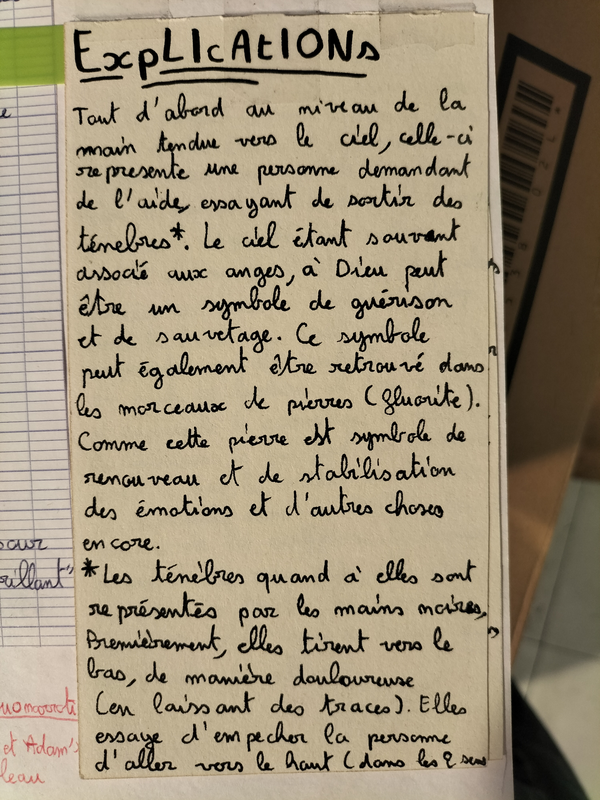 ExpLICAtIONs
Tout d'abord au niveau de la
main tendue vers le ciel, celle-ci
représente une personne demandant
de l'aide, essayant de sortir des
ténèbres*. Le ciel étant souvent
associé aux anges, à Dieu peut
être un symbole de guérison
et de sauvetage. Ce symbole
peut également être retrouvé dans
les morceaux de pierres (fluorite).
Comme cette pierre est symbole de
renouveau et de stabilisation
des émotions et d'autres choses
encore.
*Les ténèbres quand à elles sont
représentés par les mains noires,
Premièrement, elles tirent vers le
bas, de manière douloureuse
(en laissant des traces). Elles
essaye d'empecher la personne
d'aller vers le haut (dans les 2 sens
et Adam's